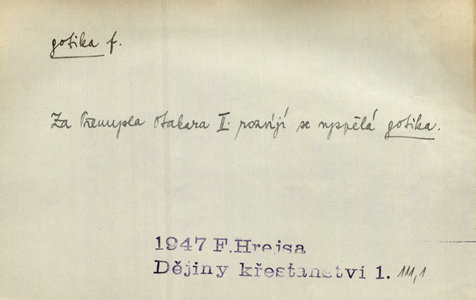 gotika f.
Za Přemysla Otakara II. rozvíjí se vyspělá gotika.
1947 F.Hrejsa
Dějiny křesťanství 1. 111,1